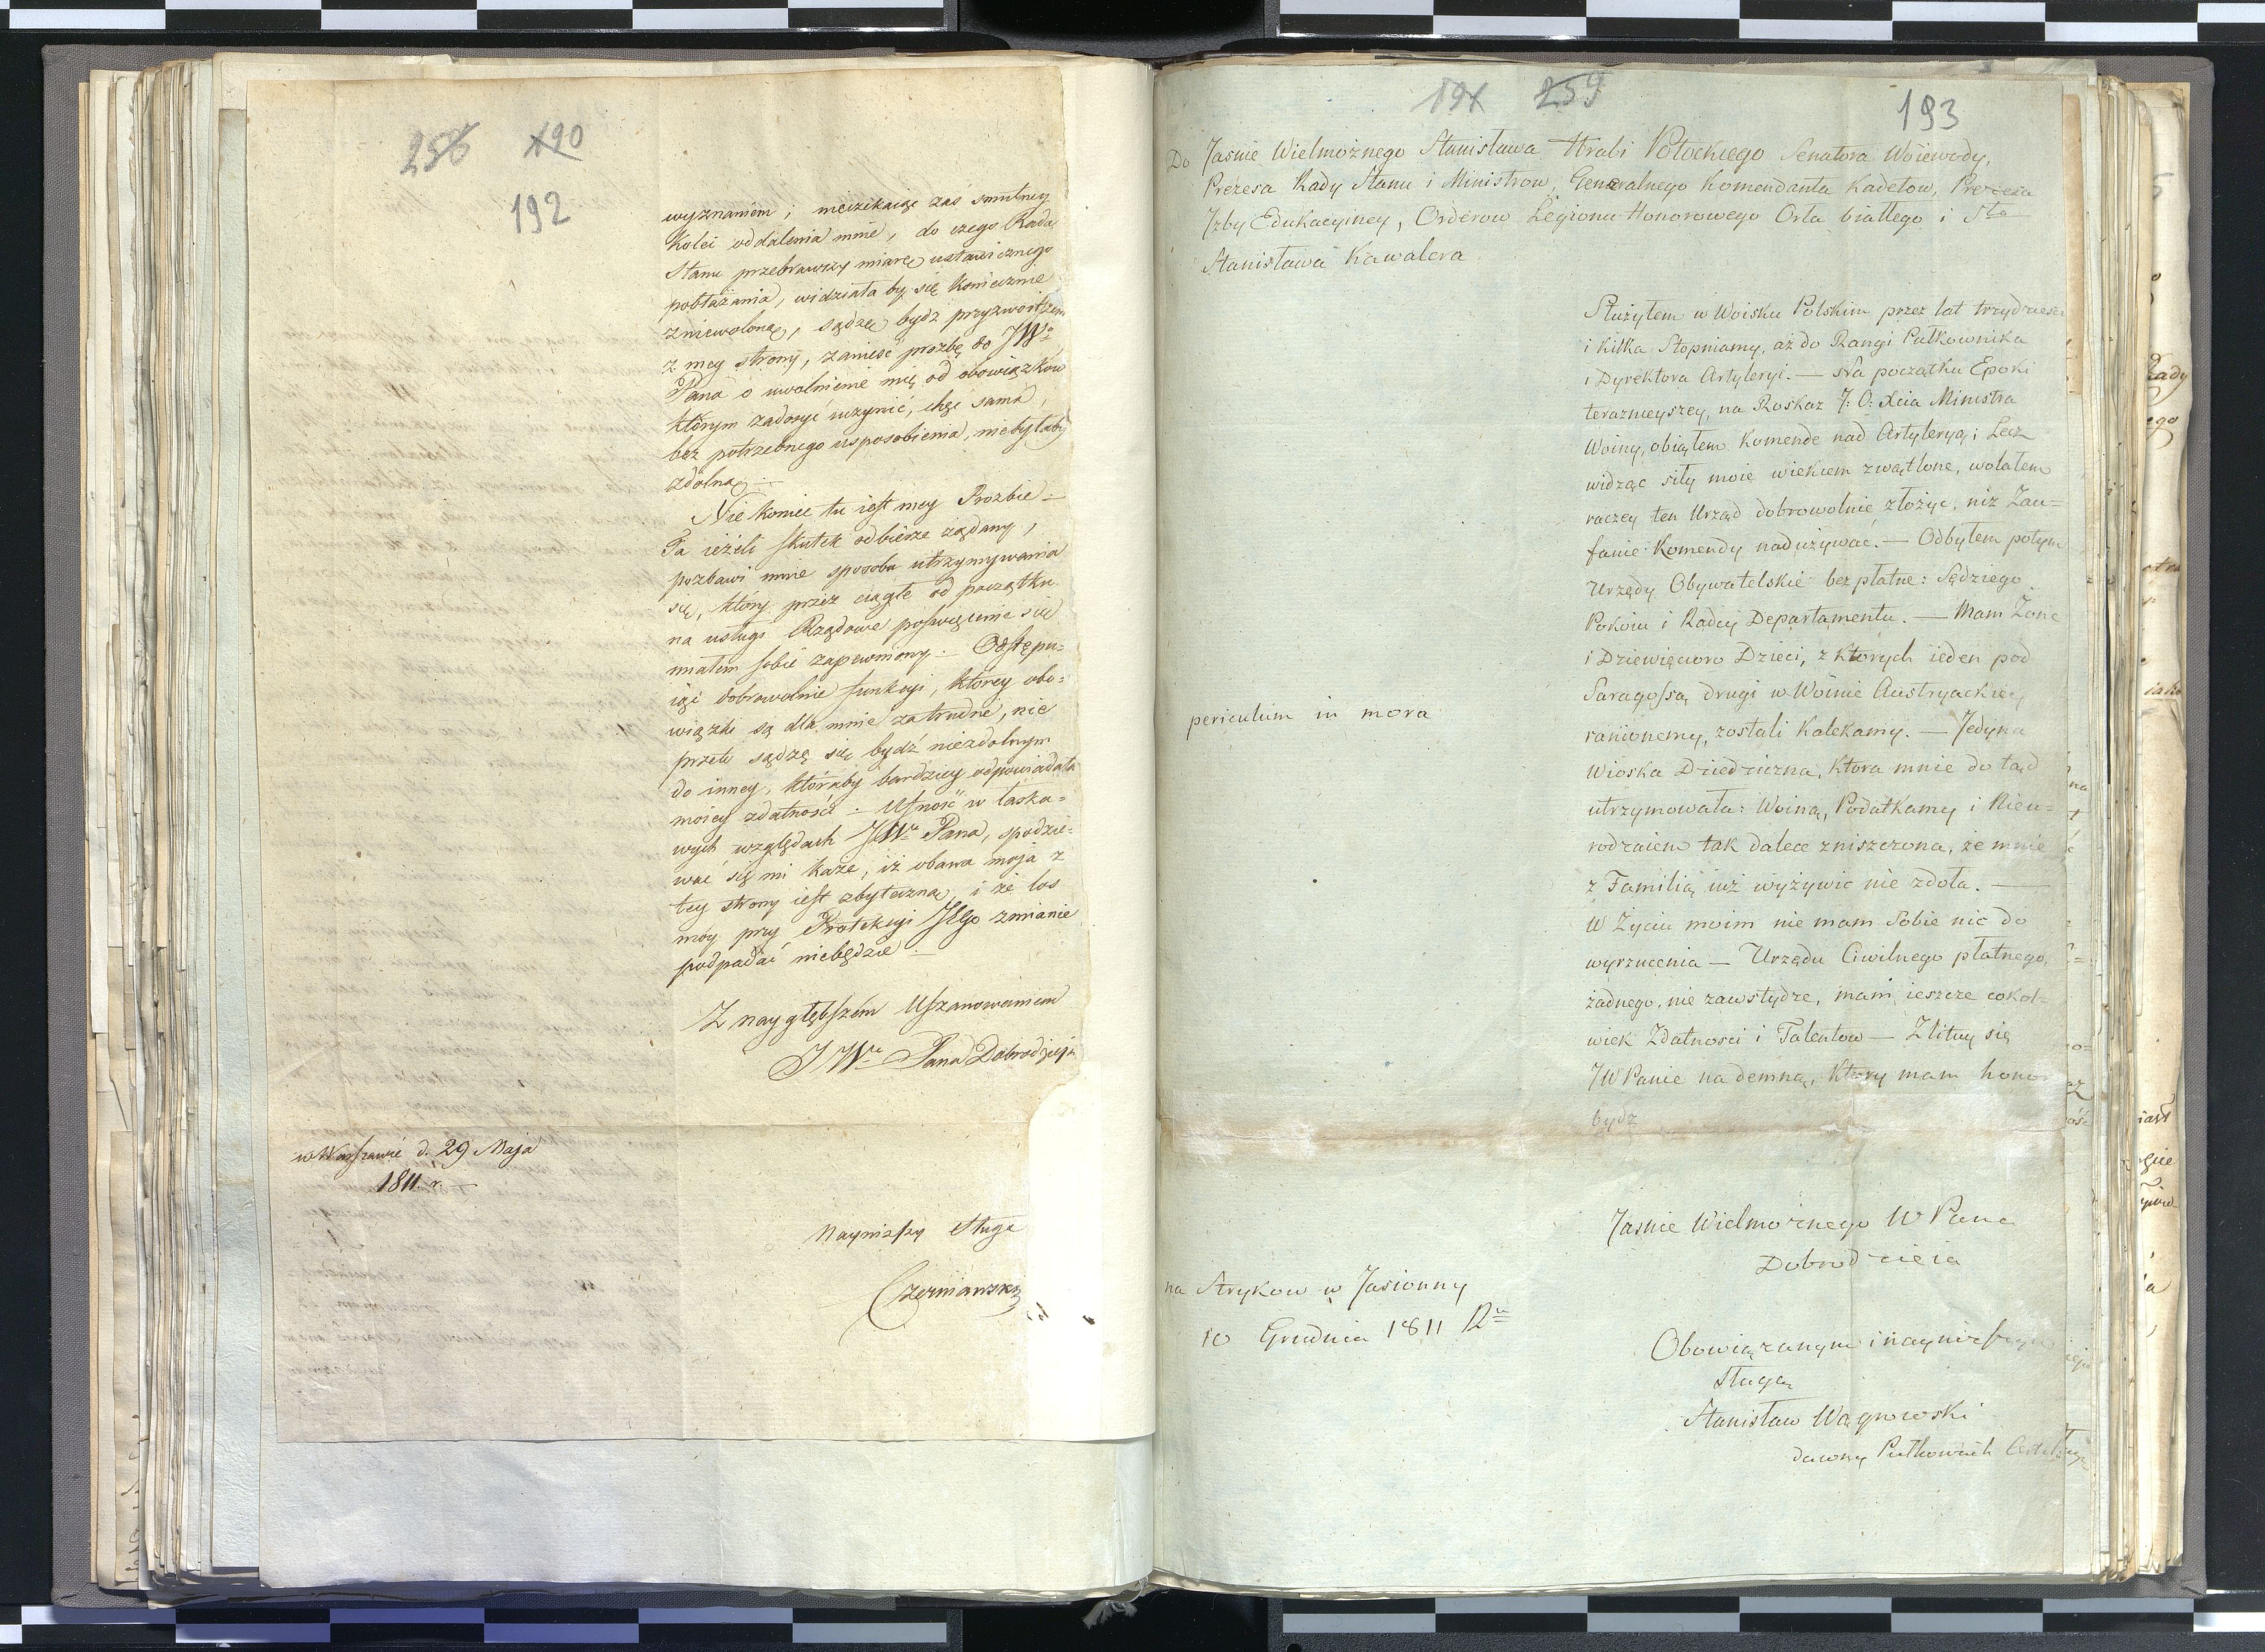 256 190
192
wyznaniem; nieczekaiąc zaś smutney
Kolei oddalenia mnie, do czego Rada
Stanu przebrawszy miarę ustawicznego
pobłażania, widziała by się koniecznie
zniewoloną, sądzę bydź przyzwoitszem
z mey strony, zanieść prozbę do JWo
Pana o uwolnienie mię od obowiązków
którym zadosyć uczynić, chęć sama,
bez potrzebnego usposobienia, niebyłaby
zdolną.—
Nie koniec tu iest mey Prozbie—
Ta ieżeli skutek odbierze żądany,
pozbawi mnie sposobu utrzymywania
się, który przez ciągłe od początku
na usługi Rządowe poswięcenie się
miałem sobie zapewniony.— Odstępu=
iąc dobrowolnie funkcyi, którey obo=
wiązki są dla mnie zatrudne, nie
przeto sądzę się bydź niezdolnym
do inney, któraby bardziey odpowiadała
moiey zdatności.— Ufność w łaska=
wych względach JWo Pana, spodzie=
wać się mi każe, iż obawa moja z
tey strony iest zbyteczną i że los
moy przy Protekcyi JEgo zmianie
podpadać niebędzie—
Z naygłębszém Uszanowaniem
JWo Pana Dobrodzieja
w Warszawie d. 29 Maja
1811. r.—
Nayniższy Sługa
Czermiański
191 259
193
Do Jaśnie Wielmożnego Stanisława Hrabi Potockiego Senatora Woiewody,
Prezesa Rady Stanu i Ministrow, Generalnego Komendanta Kadetow, Prezesa
Jzby Edukacyiney, Orderow Legionu Honorowego Orła białłego i Sto
Stanisława Kawalera
Służyłem w Woisku Polskim przez lat trzydziesci
i kilka Stopniamy, aż do Rangi Pułkownika
i Dyrektora Artyleryi.— Na początku Epoki
teraznieyszey, na Roskaz J: O: Xcia Ministra
Woiny, obiąłem Komende nad Artyleryą; Lecz
widząc siły moie wiekiem zwątlone, wolałem
raczey ten Urząd dobrowolnie złożyć, niż Zau=
fanie Komendy nadużywać.— Odbyłem potym
Urzędy Obywatelskie bezpłatne: Sędziego
Pokoiu i Radcy Departamentu.— Mam Żone
i Dziewięcioro Dzieci, z Ktorych ieden pod
Saragossą drugi w Woinie Austryackiey,
ranionemy, zostali Kalekamy.— Jedyna
Wioska Dziedziczna, Ktora mnie do tąd
utrzymowała: Woiną, Podatkamy i Nieu=
rodzaiem tak dalece zniszczona, że mnie
z Familią iuż wyżywić nie zdoła.—
W Zyciu moim nie mam Sobie nic do
wyrzucenia— Urzędu Ciwilnego płatnego,
żadnego, nie zawstydze, mam ieszcze cokol=
wiek Zdatnosci i Talentow— Zlituy się
JWPanie nademną, Ktory mam honor
bydz
periculum in mora
Jaśnie Wielmożnego WPana
Dobrodzieia
na Strykow w Jasionny
10 Grudnia 1811 R
Obowiązanym i nayniższym
Sługą
Stanisław Wągrowski
dawny Pułkownik Artyleryi